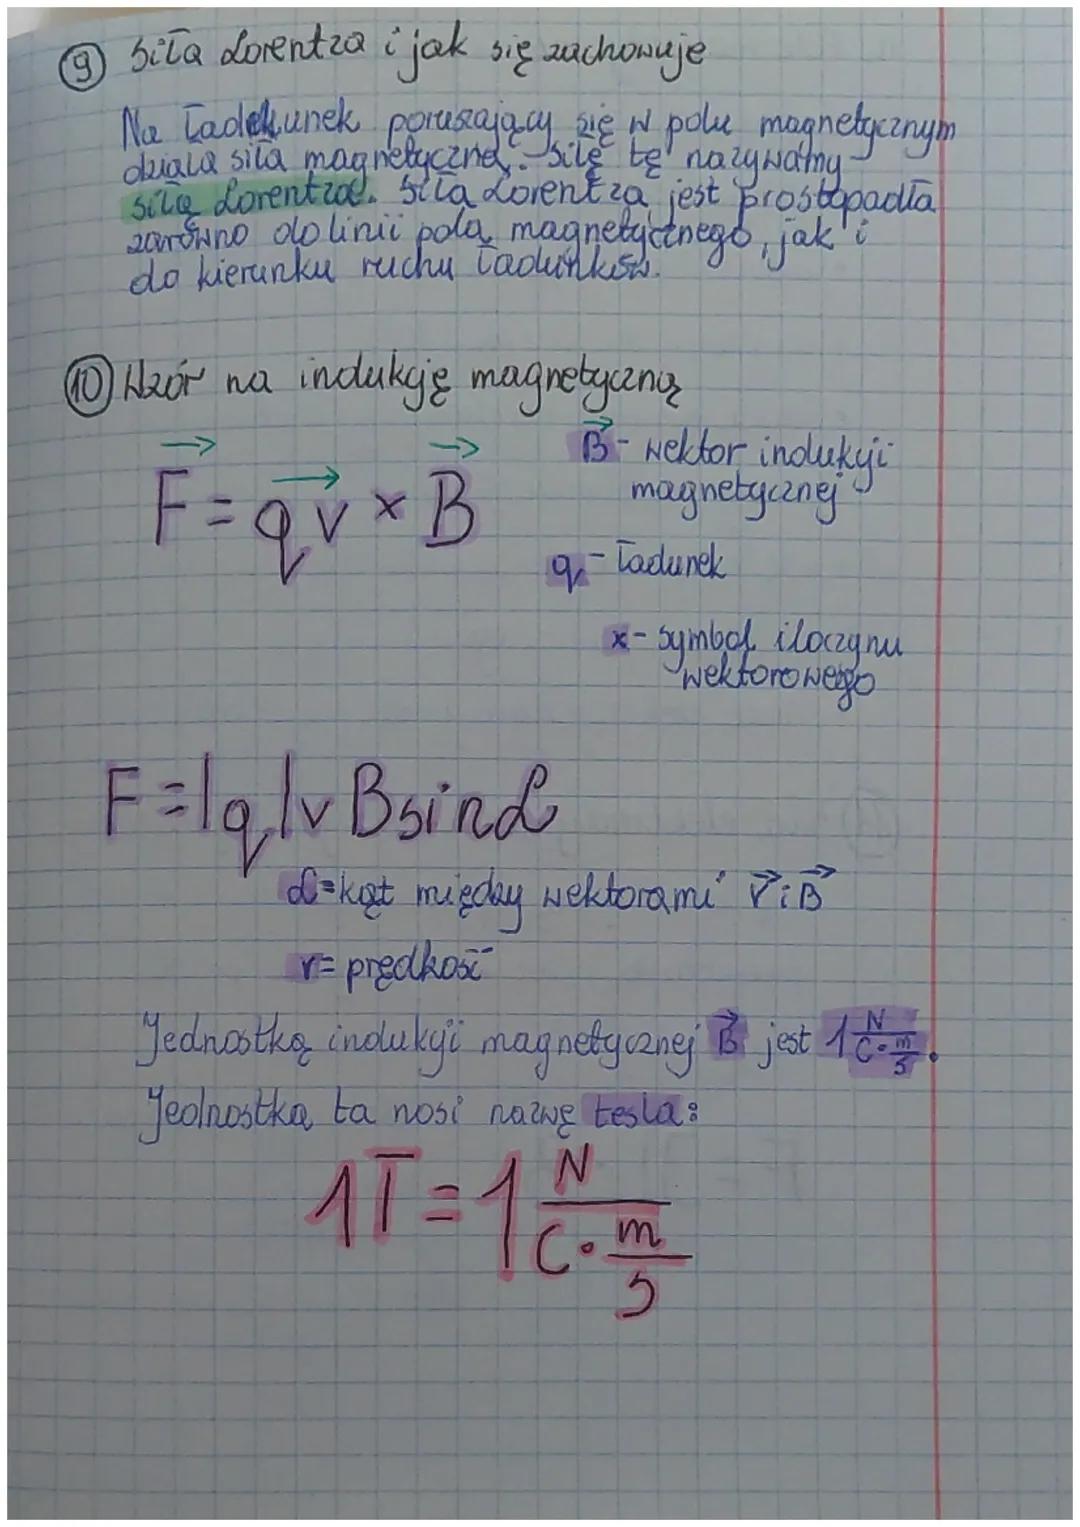 ⑨ Siła Lorentza i jak się zachowuje
Na ładunek poruszający się w polu magnetycznym
działa siła magnetyczna. Siłę tę nazywamy
siłą Lorentza. Siła Lorentza jest prostopadła
zarówno do linii pola magnetycznego, jak i
do kierunku ruchu ładunków.
⑩ Wzór na indukcję magnetyczną
F⃗ = q v⃗ × B⃗
B⃗ - wektor indukcji
magnetycznej
q - ładunek
x - symbol iloczynu
wektorowego
F = |q| v B sin α
α = kąt między wektorami v⃗ i B⃗
v = prędkość
Jednostką indukcji magnetycznej B⃗ jest 1 N/(C·m/s).
Jednostka ta nosi nazwę tesla:
1T = 1 N/(C·m/s)